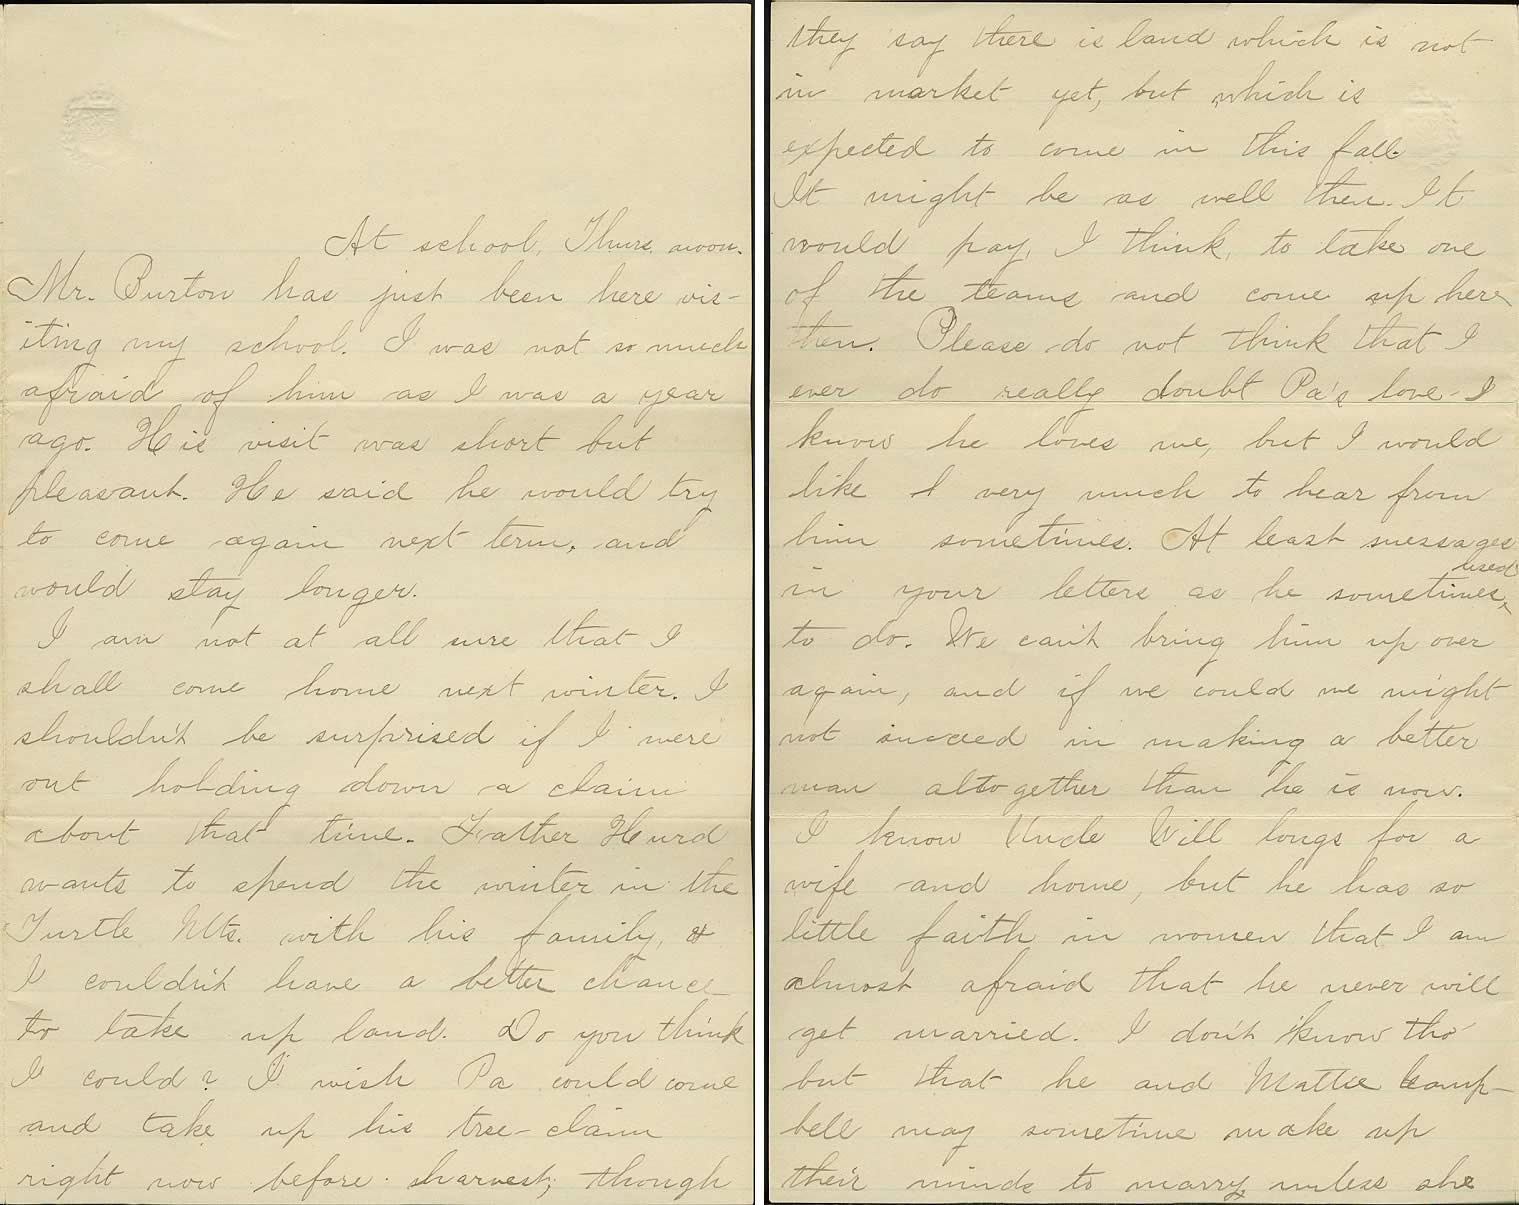 At school, Thurs. noon.
Mr. Burton has just been here vis-
iting my school. I was not so much
afraid of him as I was a year
ago. His visit was short but
pleasant. He said he would try
to come again next term, and
would stay longer.
I am not at all sure that I
shall come home next winter. I
shouldn't be surprised if I were
out holding down a claim
about that time. Father Hurd
wants to spend the winter in the
Turtle Mts. with his family, &
I couldn't have a better chance
to take up land. Do you think
I could? I wish Pa could come
and take up his tree-claim
right now before harvest, though
they say there is land which is not
in market yet, but which is
expected to come in this fall.
It might be as well then. It
would pay, I think, to take one
of the teams and come up here
then. Please do not think that I
ever do really doubt Pa's love - I
know he loves me, but I would
like very much to hear from
him sometimes. At least messages
in your letters as he sometimes used
to do. We can't bring him up over
again, and if we could we might
not succeed in making a better
man altogether than he is now.
I know Uncle Will longs for a
wife and home, but he has so
little faith in women that I am
almost afraid that he never will
get married. I don't know tho'
but that he and Mattie Camp-
bell may sometime make up
their minds to marry, unless she